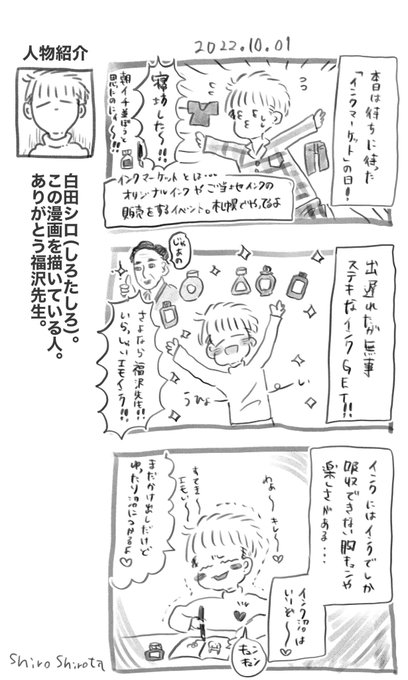 2022.10.01
人物紹介
白田シロ(しろたしろ)。
この漫画を描いている人。
ありがとう福沢先生。
本日は待ちに待った
「インクマーケット」の日!!
寝坊したぁ!!
朝イチ並ぼうと
思たのにぃ〜!!
インクマーケットとは…
オリジナルインクやご当地インクの
販売をするイベント。札幌でやってるよ
出遅れたが無事
ステキなインクGET!!
じゃあの
さよなら福沢先生!!
いらっしゃいエモインク!!
うひょ
い
インクにはインクでしか
吸収できない胸キュンや
楽しさがある…
わぁ〜キレ〜♡
すてき〜
エモい〜
まだかけ出しだけど
ゆったり沼につかるよ
インク沼は
いいぞ〜♡
キュン
キュン
Shiro Shirota